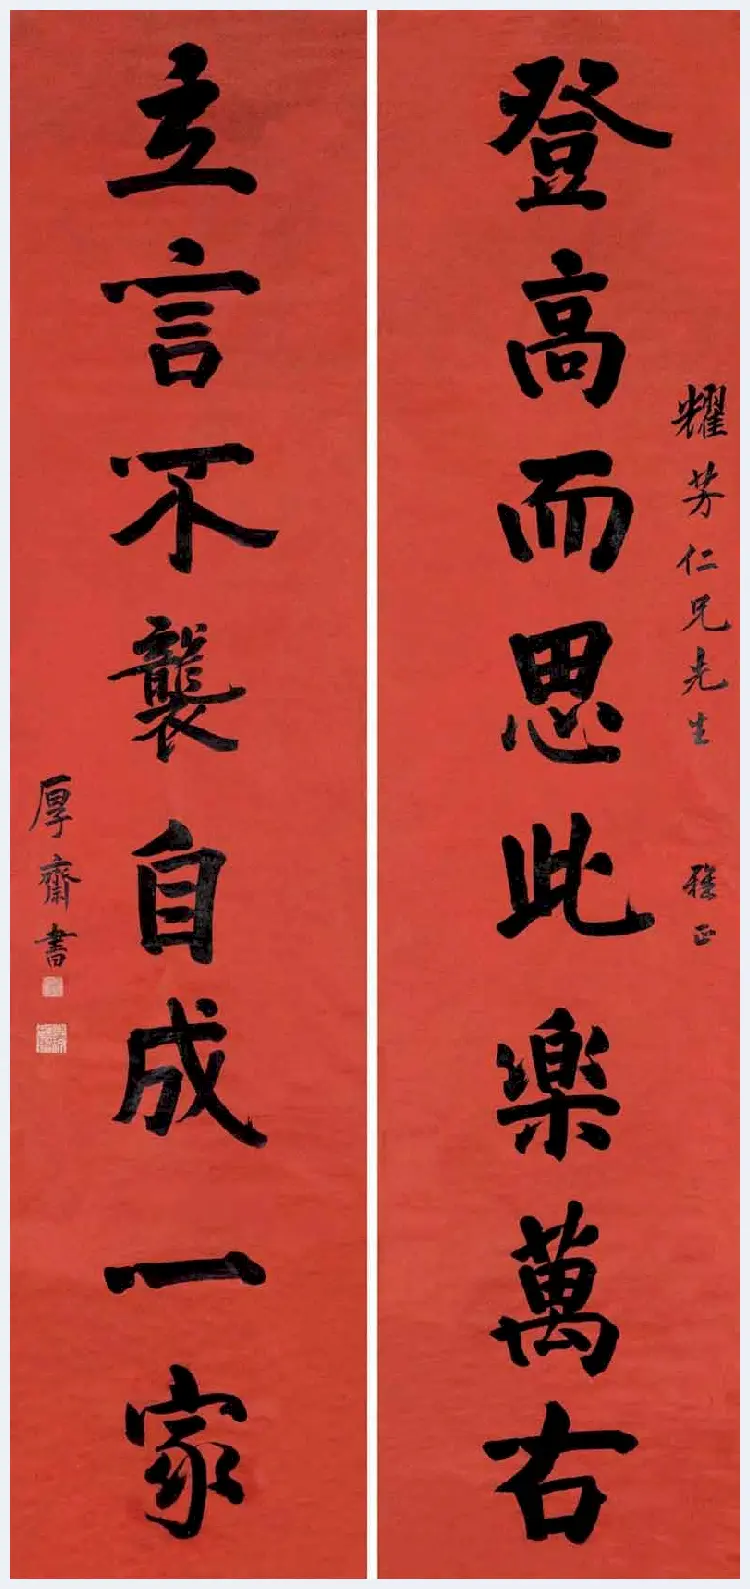 耀芳仁兄先生 雅正
登高而思此楽萬右
立言不襲自成一家
厚齋書